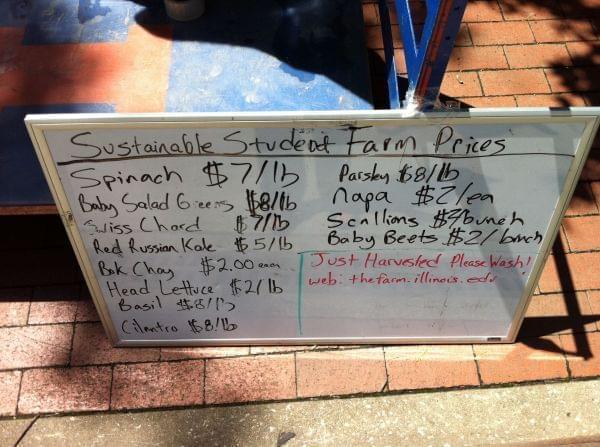 Sustainable Student Farm Prices
Spinach $7/lb
Baby Salad Greens $8/lb
Swiss Chard $7/lb
Red Russian Kale $5/lb
Bok Choy $2.00 each
Head Lettuce $2/lb
Basil $8/lb
Cilantro $8/lb
Parsley $8/lb
napa $2/ea
Scallions /bunch
Baby Beets $2/bunch
Just Harvested Please Wash!
web: thefarm.illinois.edu